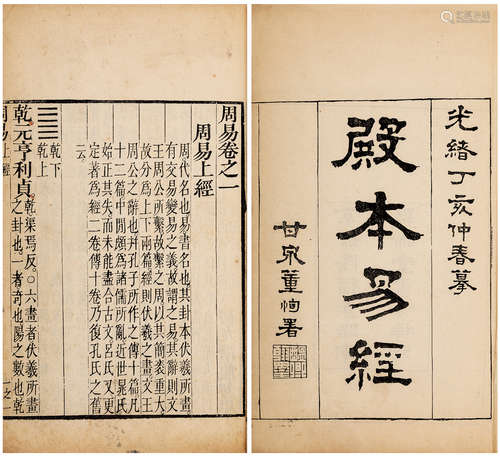 光緒丁亥仲春摹
殿本易經
甘泉董恂署
周易卷之一
周易上經
周代名也易書名也其卦本伏羲所畫
有交易變易之義故謂之易其辭則文
王周公所繫故繫之周以其簡袠重大
故分爲上下兩篇經則伏羲之畫文王
周公之辭也并孔子所作之傳十篇凡
十二篇中間頗爲諸儒所亂近世晁氏
始正其失而未能盡合古文呂氏又更
定著爲經二卷傳十卷乃復孔氏之舊
云
乾下
乾上
乾元亨利貞
乾渠焉反。○六畫者伏羲所畫
之卦也。一者奇也陽之數也乾
周易上經